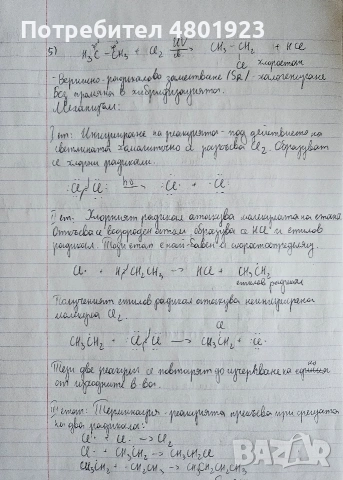 Поръчай на телефон: 4801923
5) H₃C – CH₃ + Cl₂ UV CH₃–CH₂ + HCl
Cl хлоретан
- Верижно-радикалово заместване /SR/ - халогениране
Без промяна в хибридизацията.
Механизъм:
I ет: Иницииране на реакцията - под действието на
светлината хомолитично се разкъсва Cl₂. Образуват
се хлорни радикали.
:Cl/Cl: hυ → :Cl· + ·Cl:
II ет. Хлорният радикал атакува молекулата на етана.
Откъсва се водороден атом, образува се HCl и етилов
радикал. Този етап е най-бавен и скоростопределящ.
Cl· + H/CH₂CH₃ → HCl + CH₂CH₃
етилов радикал
Полученият етилов радикал атакува неинициирана
молекула Cl₂.
Cl
CH₃CH₂ + :Cl/Cl: → CH₃CH₂ + ·Cl:
Тези две реакции се повтарят до изчерпване на
от изходните в-ва.
III етап: Терминация - реакцията прекъсва при срещата
на два радикала:
Cl· + Cl· → Cl₂
Cl· + CH₃CH₂ → CH₃CH₂Cl
CH₃CH₂ + CH₂CH₃ → CH₃CH₂CH₂CH₃
bazar.bg